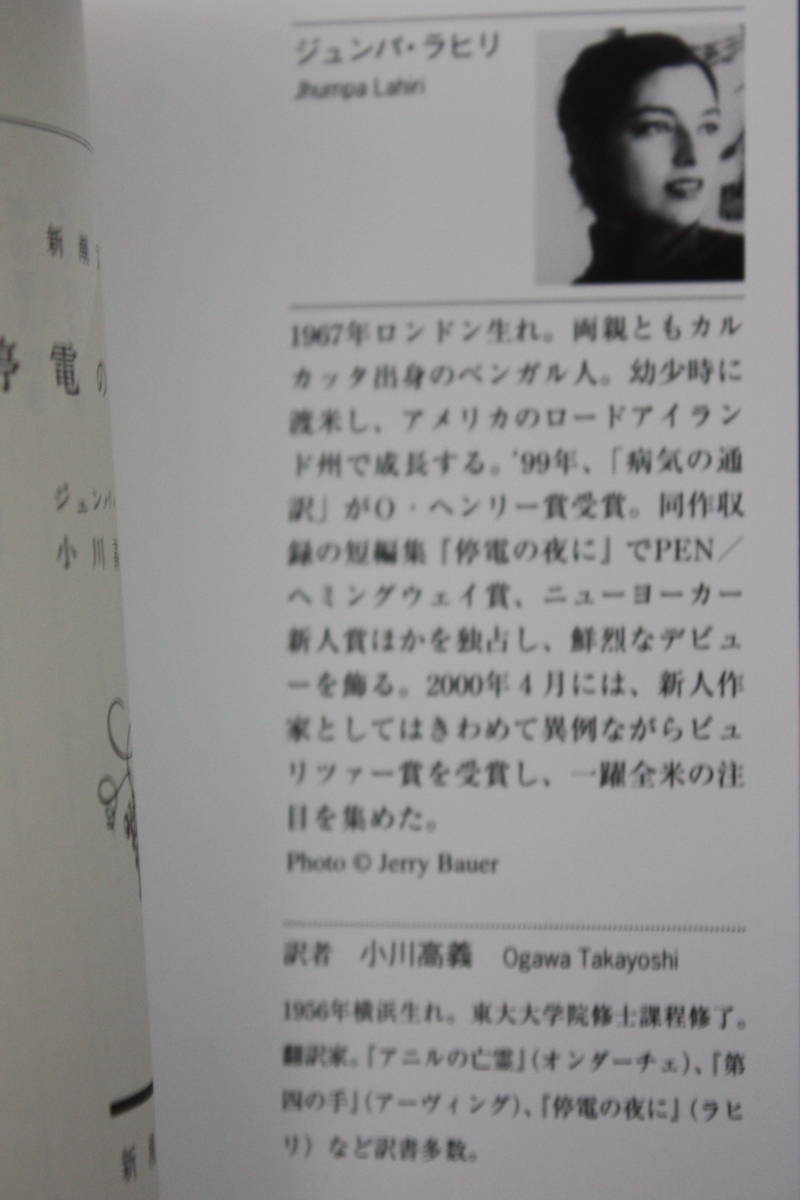 ジュンパ・ラヒリ
Jhumpa Lahiri
1967年ロンドン生れ。両親ともカル
カッタ出身のベンガル人。幼少時に
渡米し、アメリカのロードアイラン
ド州で成長する。'99年、「病気の通
訳」がO・ヘンリー賞受賞。同作収
録の短編集『停電の夜に』でPEN／
ヘミングウェイ賞、ニューヨーカー
新人賞ほかを独占し、鮮烈なデビュ
ーを飾る。2000年4月には、新人作
家としてはきわめて異例ながらピュ
リツァー賞を受賞し、一躍全米の注
目を集めた。
Photo © Jerry Bauer
訳者 小川高義 Ogawa Takayoshi
1956年横浜生れ。東大大学院修士課程修了。
翻訳家。『アニルの亡霊』(オンダーチェ)、『第
四の手』(アーヴィング)、『停電の夜に』(ラヒ
リ) など訳書多数。
新潮
停電の
ジュンパ
小川
新